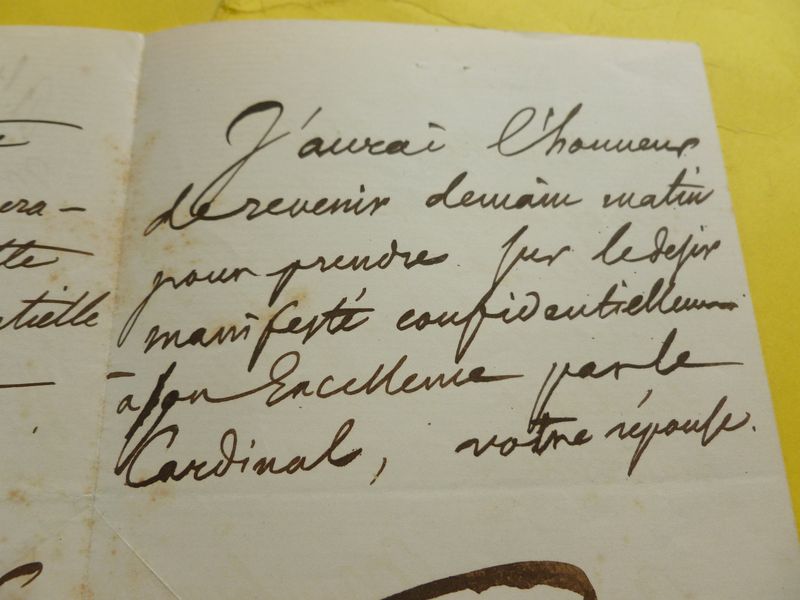 era-
tte
ntielle
J'aurai l'honneur
de revenir demain matin
pour prendre sur le desir
manifesté confidentiellem
à son Excellence par le
Cardinal, votre réponse.